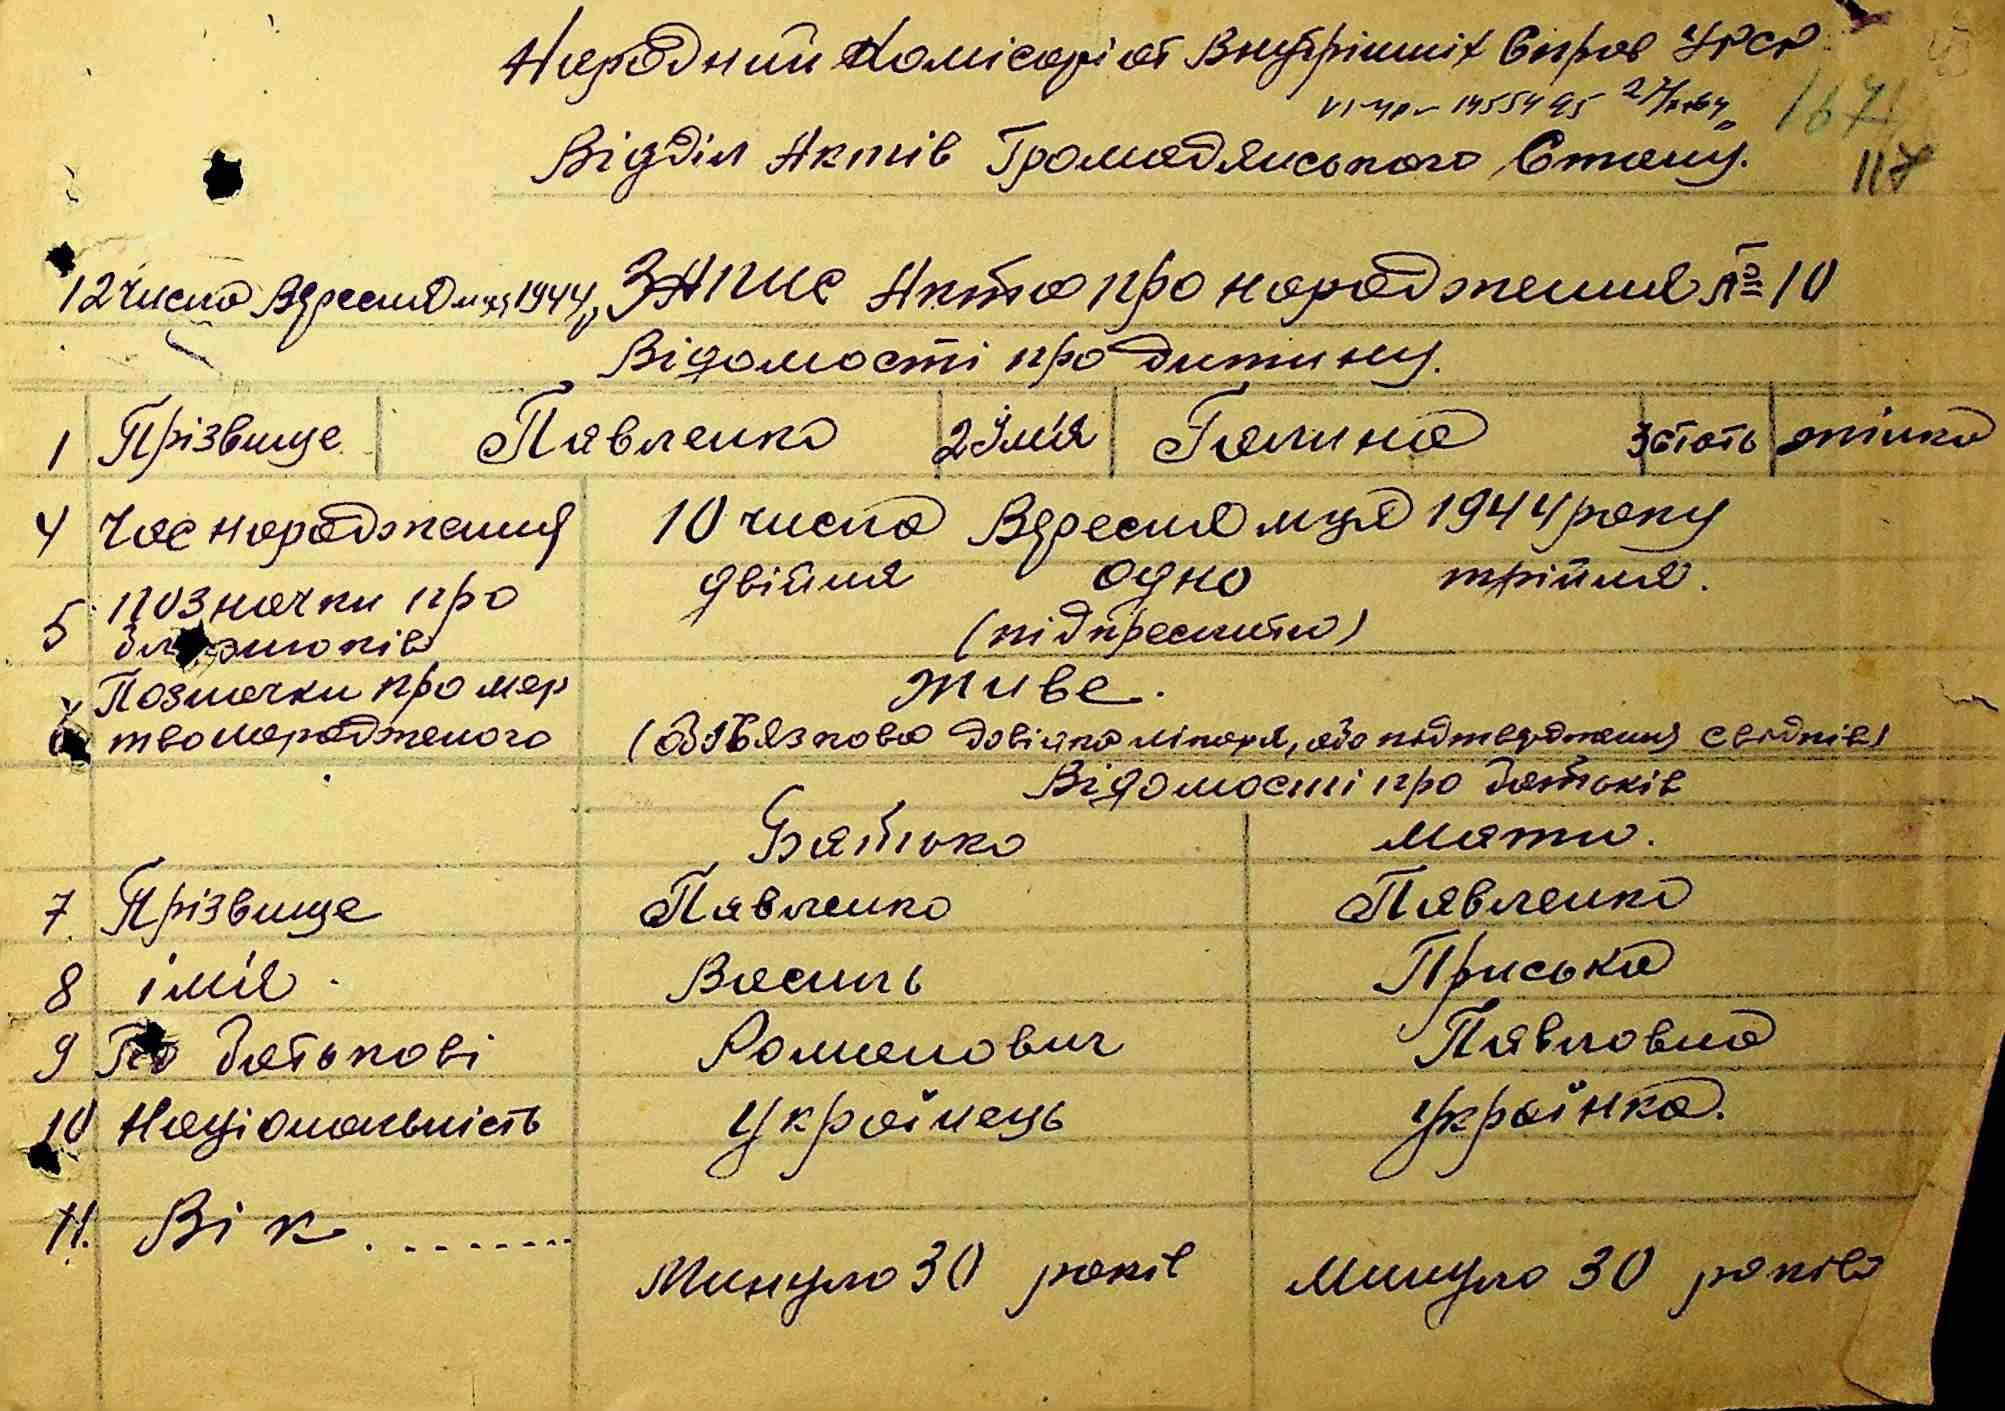 Народний Комісаріат Внутрішніх Справ УРСР
1455495
167
Відділ Актів Громадянського Стану.
117
12 число Вересня м-ця 1944 ЗАпис Акта про народження № 10
Відомості про дитину.
1 Прізвище Павленко 2 Ім'я Галина 3 стать жінка
4 Час народження 10 числа Вересня м-ця 1944 року
5 Позначки про близнюків двійня одно трійня.
(підкреслити)
6 Позначки про мер живе.
твонародженого (Обов'язково довідка лікаря, або підтвердження свідків)
Відомості про батьків
Батько Мати.
7 Прізвище Павленко Павленко
8 ім'я. Василь Приська
9 По батькові Романович Павловна
10 Національність Українець Українка.
11. Вік ........
Минуло 30 років Минуло 30 років